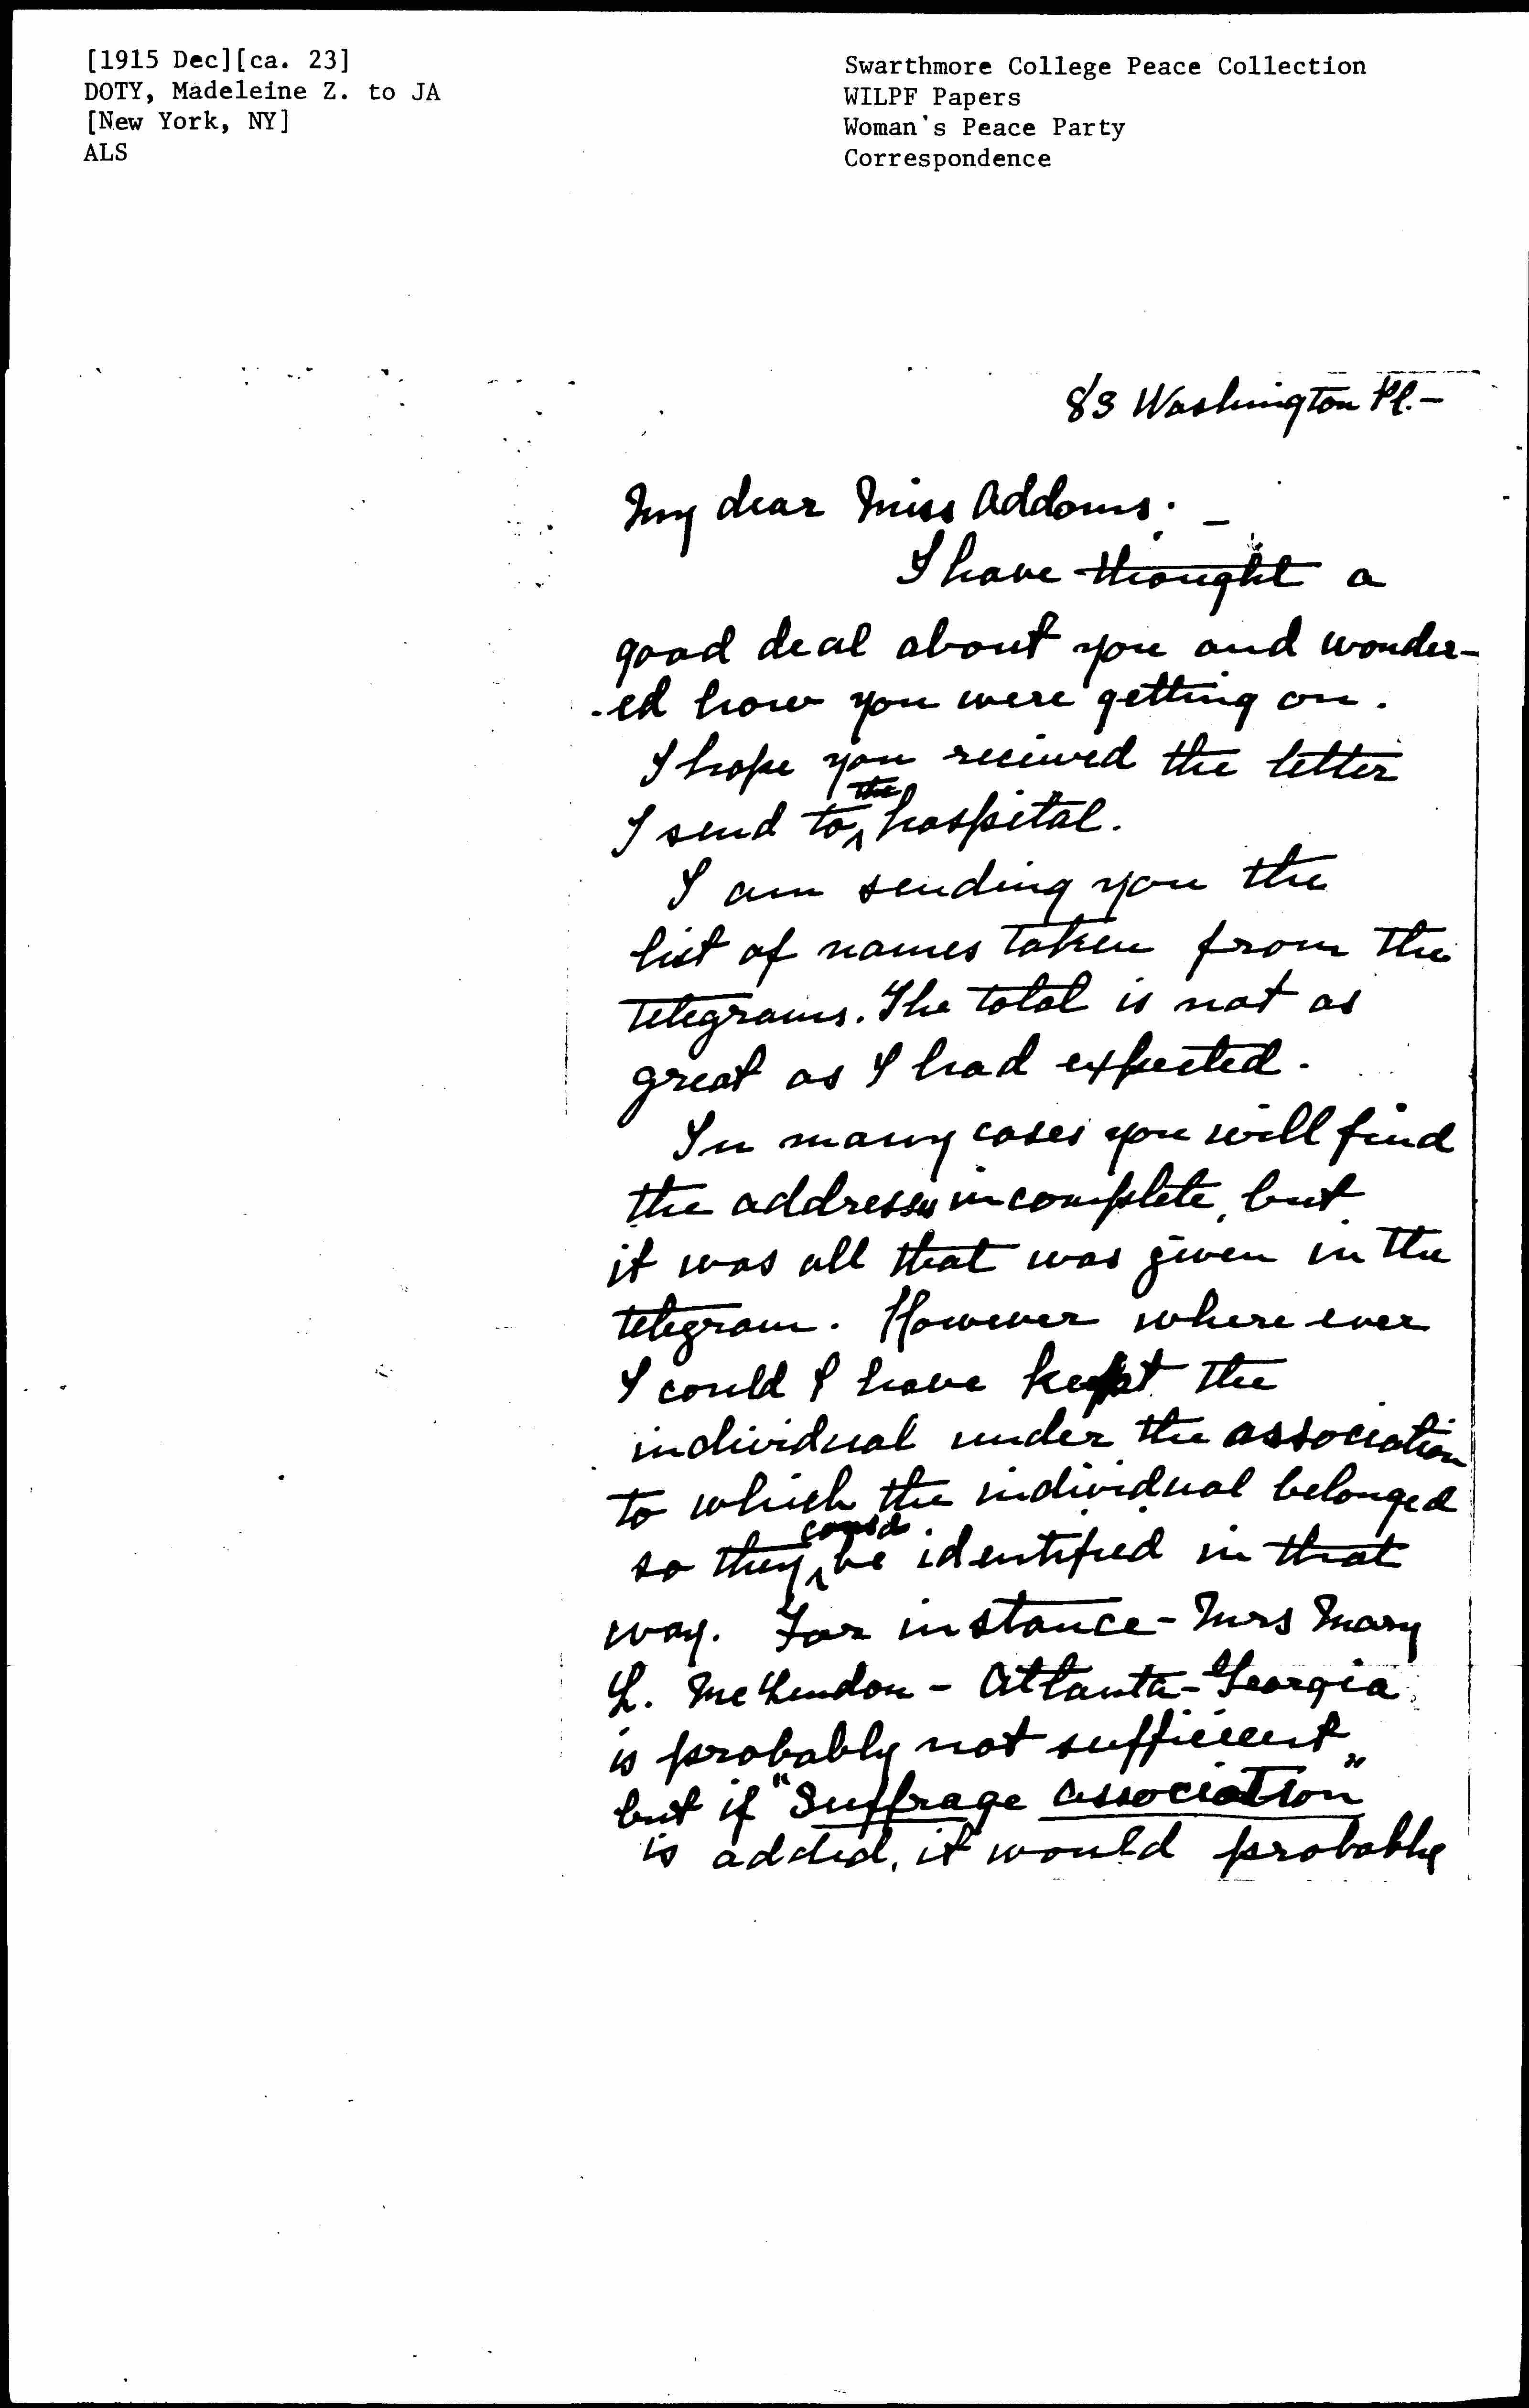 [1915 Dec][ca. 23]
DOTY, Madeleine Z. to JA
[New York, NY]
ALS
Swarthmore College Peace Collection
WILPF Papers
Woman's Peace Party
Correspondence
83 Washington Pl.-
My dear Miss Addams. -
I have thought a
good deal about you and wonder-
-ed how you were getting on.
I hope you received the letter
I send to the hospital.
I am sending you the
list of names taken from the
telegrams. The total is not as
great as I had expected.
In many cases you will find
the addresses incomplete, but
it was all that was given in the
telegram. However where ever
I could I have kept the
individual under the association
to which the individual belonged
so they could be identified in that
way. For instance - Mrs Mary
L. McLendon - Atlanta - Georgia
is probably not sufficient
but if "Suffrage Association"
is added, it would probably